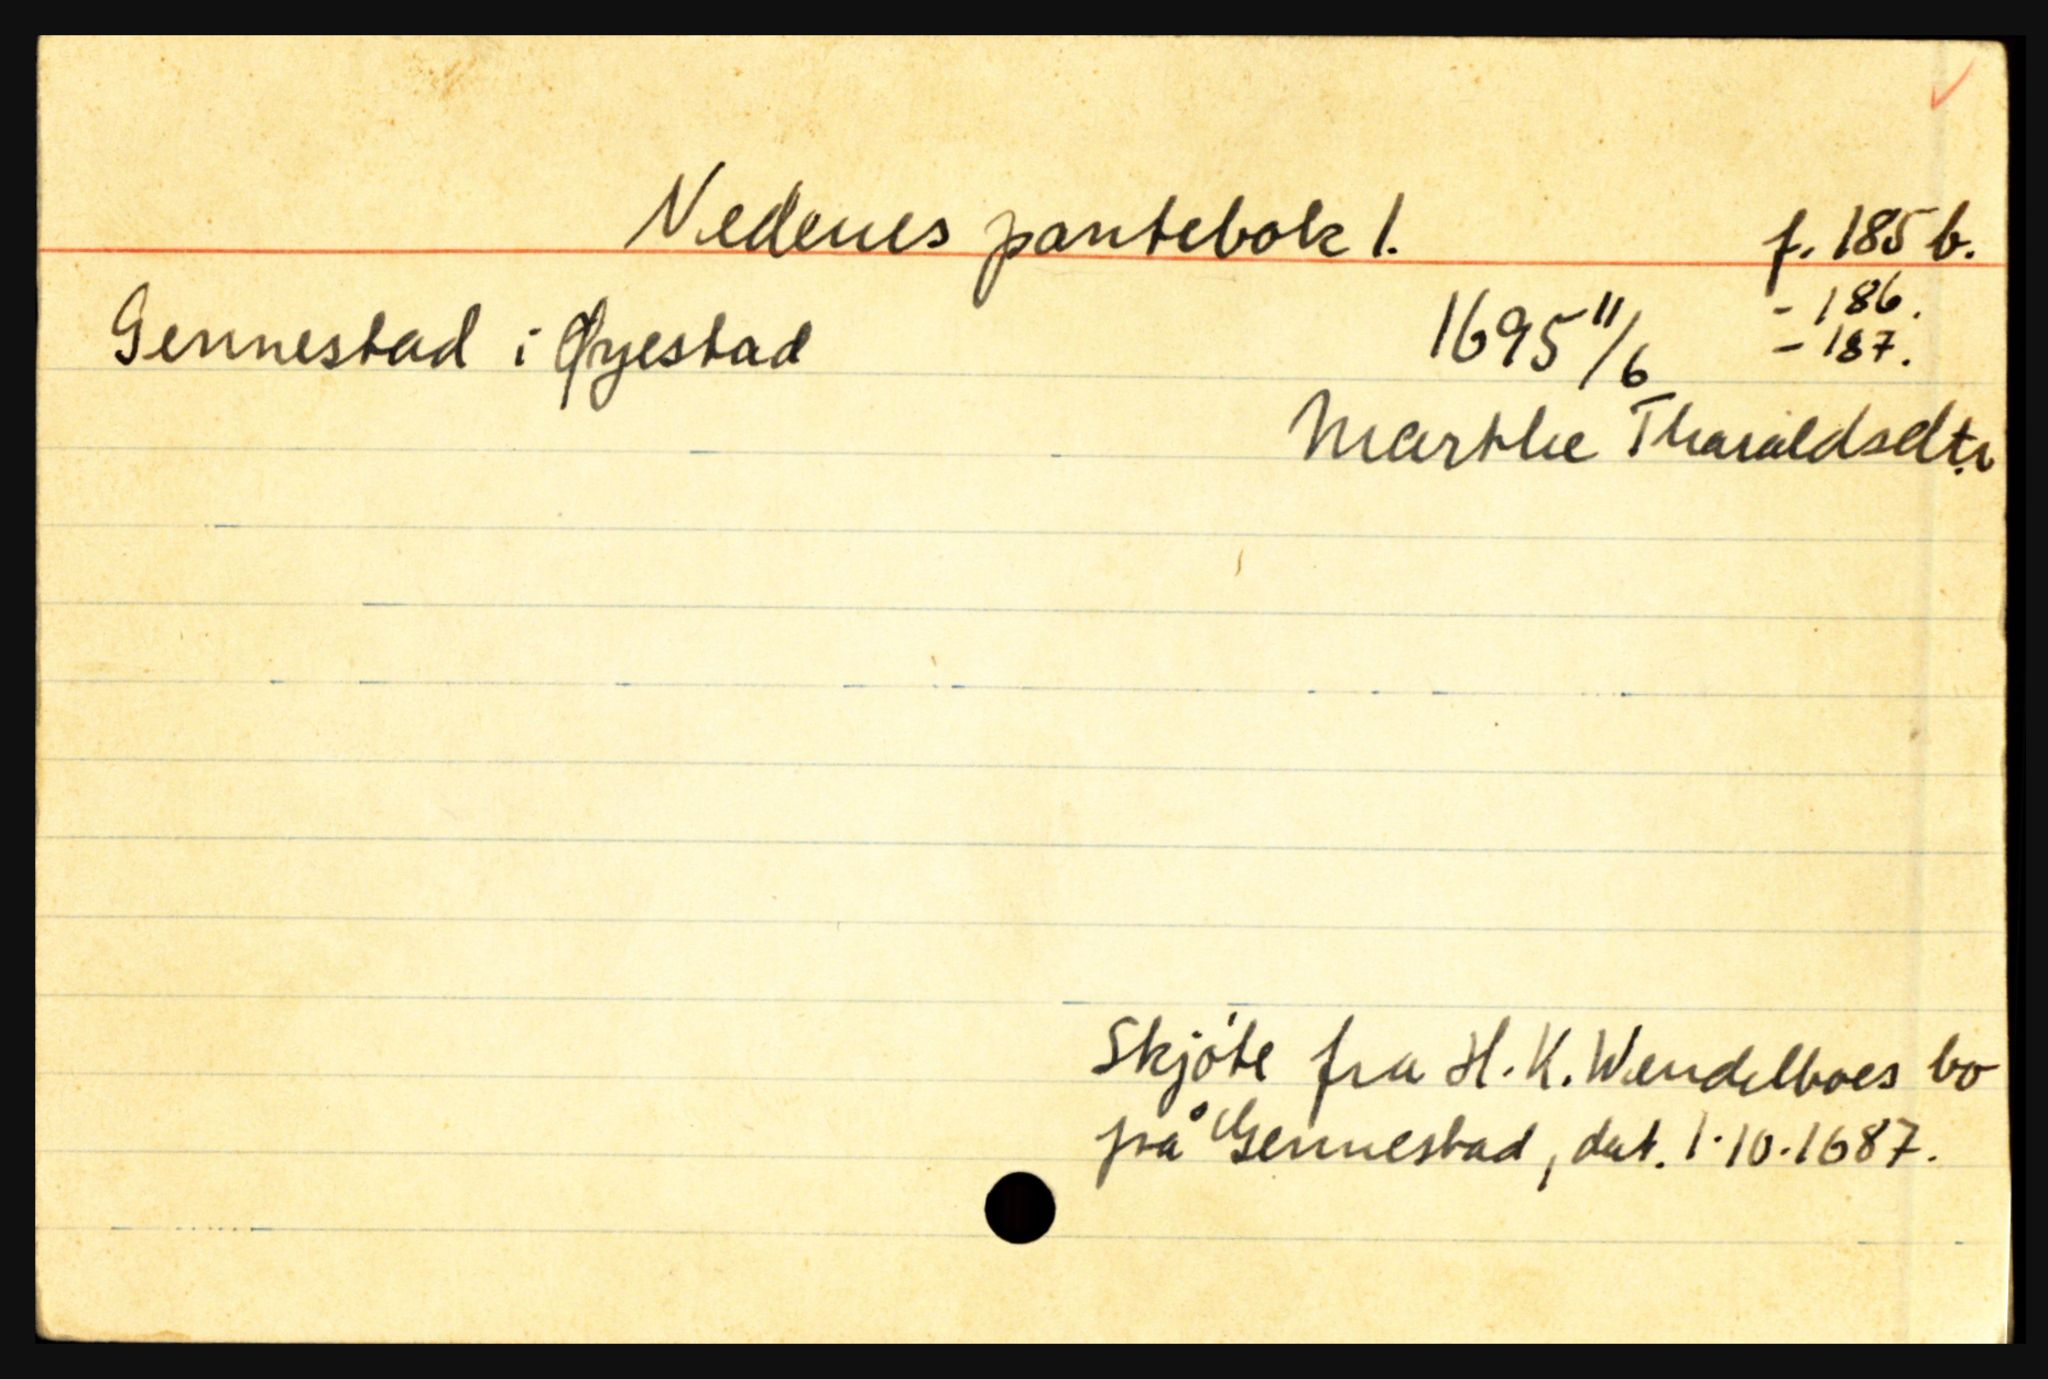 Nedenes pantebok 1. f. 185 b.
- 186.
Gennestad i Øyestad 1695 11/6 - 187.
Marthe Tharaldsdtr
Skjöte fra H. K. Wendelboes bo
på Gennestad, dat. 1.10.1687.